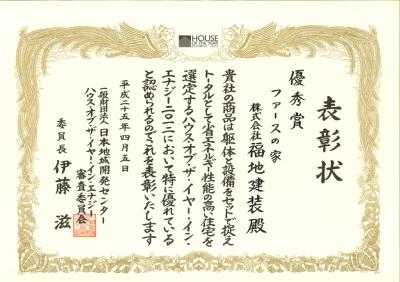 HOUSE
OF THE YEAR
表彰状
優秀賞
ファースの家
株式会社 福地建装 殿
貴社の商品は躯体と設備をセットで捉え
トータルとして省エネルギー性能の高い住宅を
選定するハウス・オブ・ザ・イヤー・イン・
エナジー二〇一二において特に優れている
と認められるのでこれを表彰いたします
平成二十五年四月五日
一般財団法人 日本地域開発センター
ハウス・オブ・ザ・イヤー・イン・エナジー
審査委員会
委員長 伊藤 滋